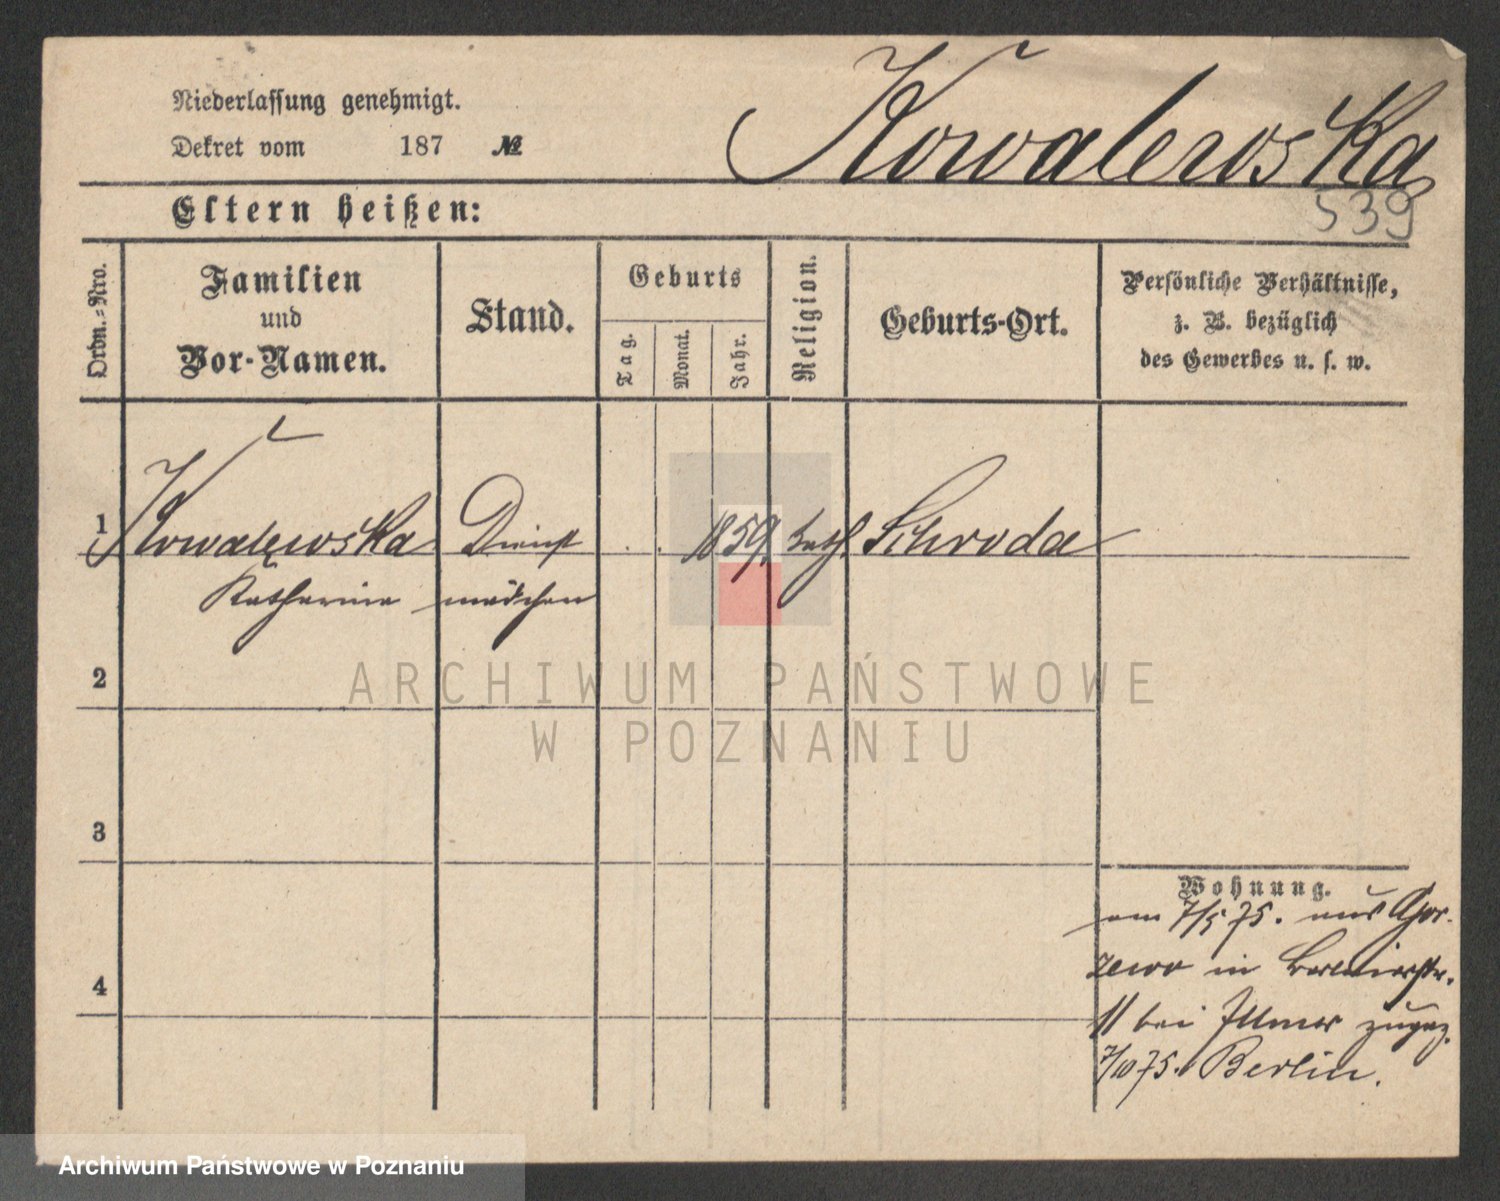 Niederlassung genehmigt.
Dekret vom 187 №
Kowalewska
539
Eltern heißen:
Ordn.-Nro.
Familien
und
Vor-Namen.
Stand.
Geburts
Tag.
Monat.
Jahr.
Religion.
Geburts-Ort.
Persönliche Verhältnisse,
z. B. bezüglich
des Gewerbes u. s. w.
1 Kowalewska Dienst . . 1859. kath. Schroda
Katharina mädchen
2
ARCHIWUM PAŃSTWOWE
W POZNANIU
3
Wohnung.
am 7/5 75. aus Gor-
4
zewo in
11 bei Illmer zugez.
7/10 75. Berlin.
Archiwum Państwowe w Poznaniu